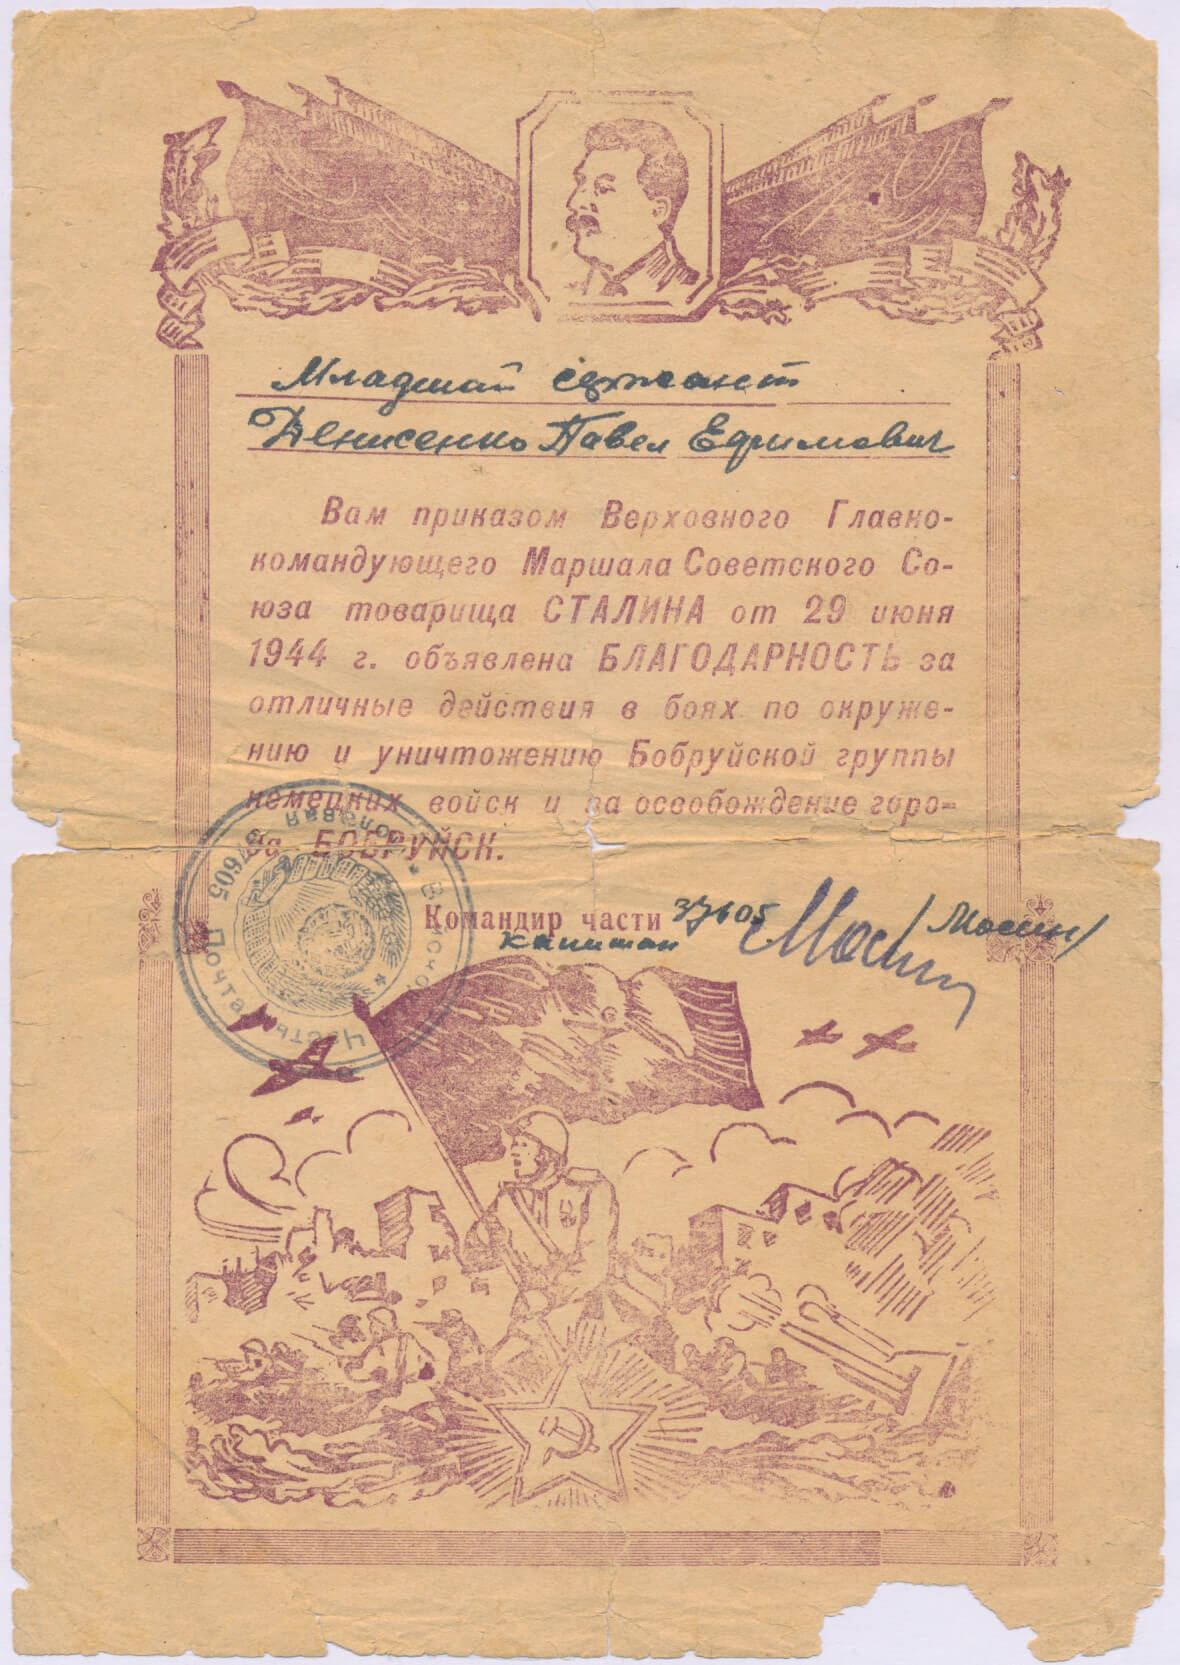 Младший сержант
Денисенко Павел Ефимович
Вам приказом Верховного Главно-
командующего Маршала Советского Со-
юза товарища СТАЛИНА от 29 июня
1944 г. объявлена БЛАГОДАРНОСТЬ за
отличные действия в боях по окруже-
нию и уничтожению Бобруйской группы
немецких войск и за освобождение горо-
да БОБРУЙСК.
Командир части 37605
капитан
Мосин /Мосин/
Войсковая Часть
Полевая Почта
37605